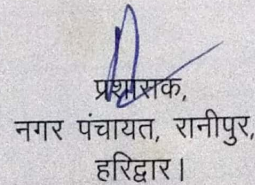 प्रशासक,
नगर पंचायत, रानीपुर,
हरिद्वार।